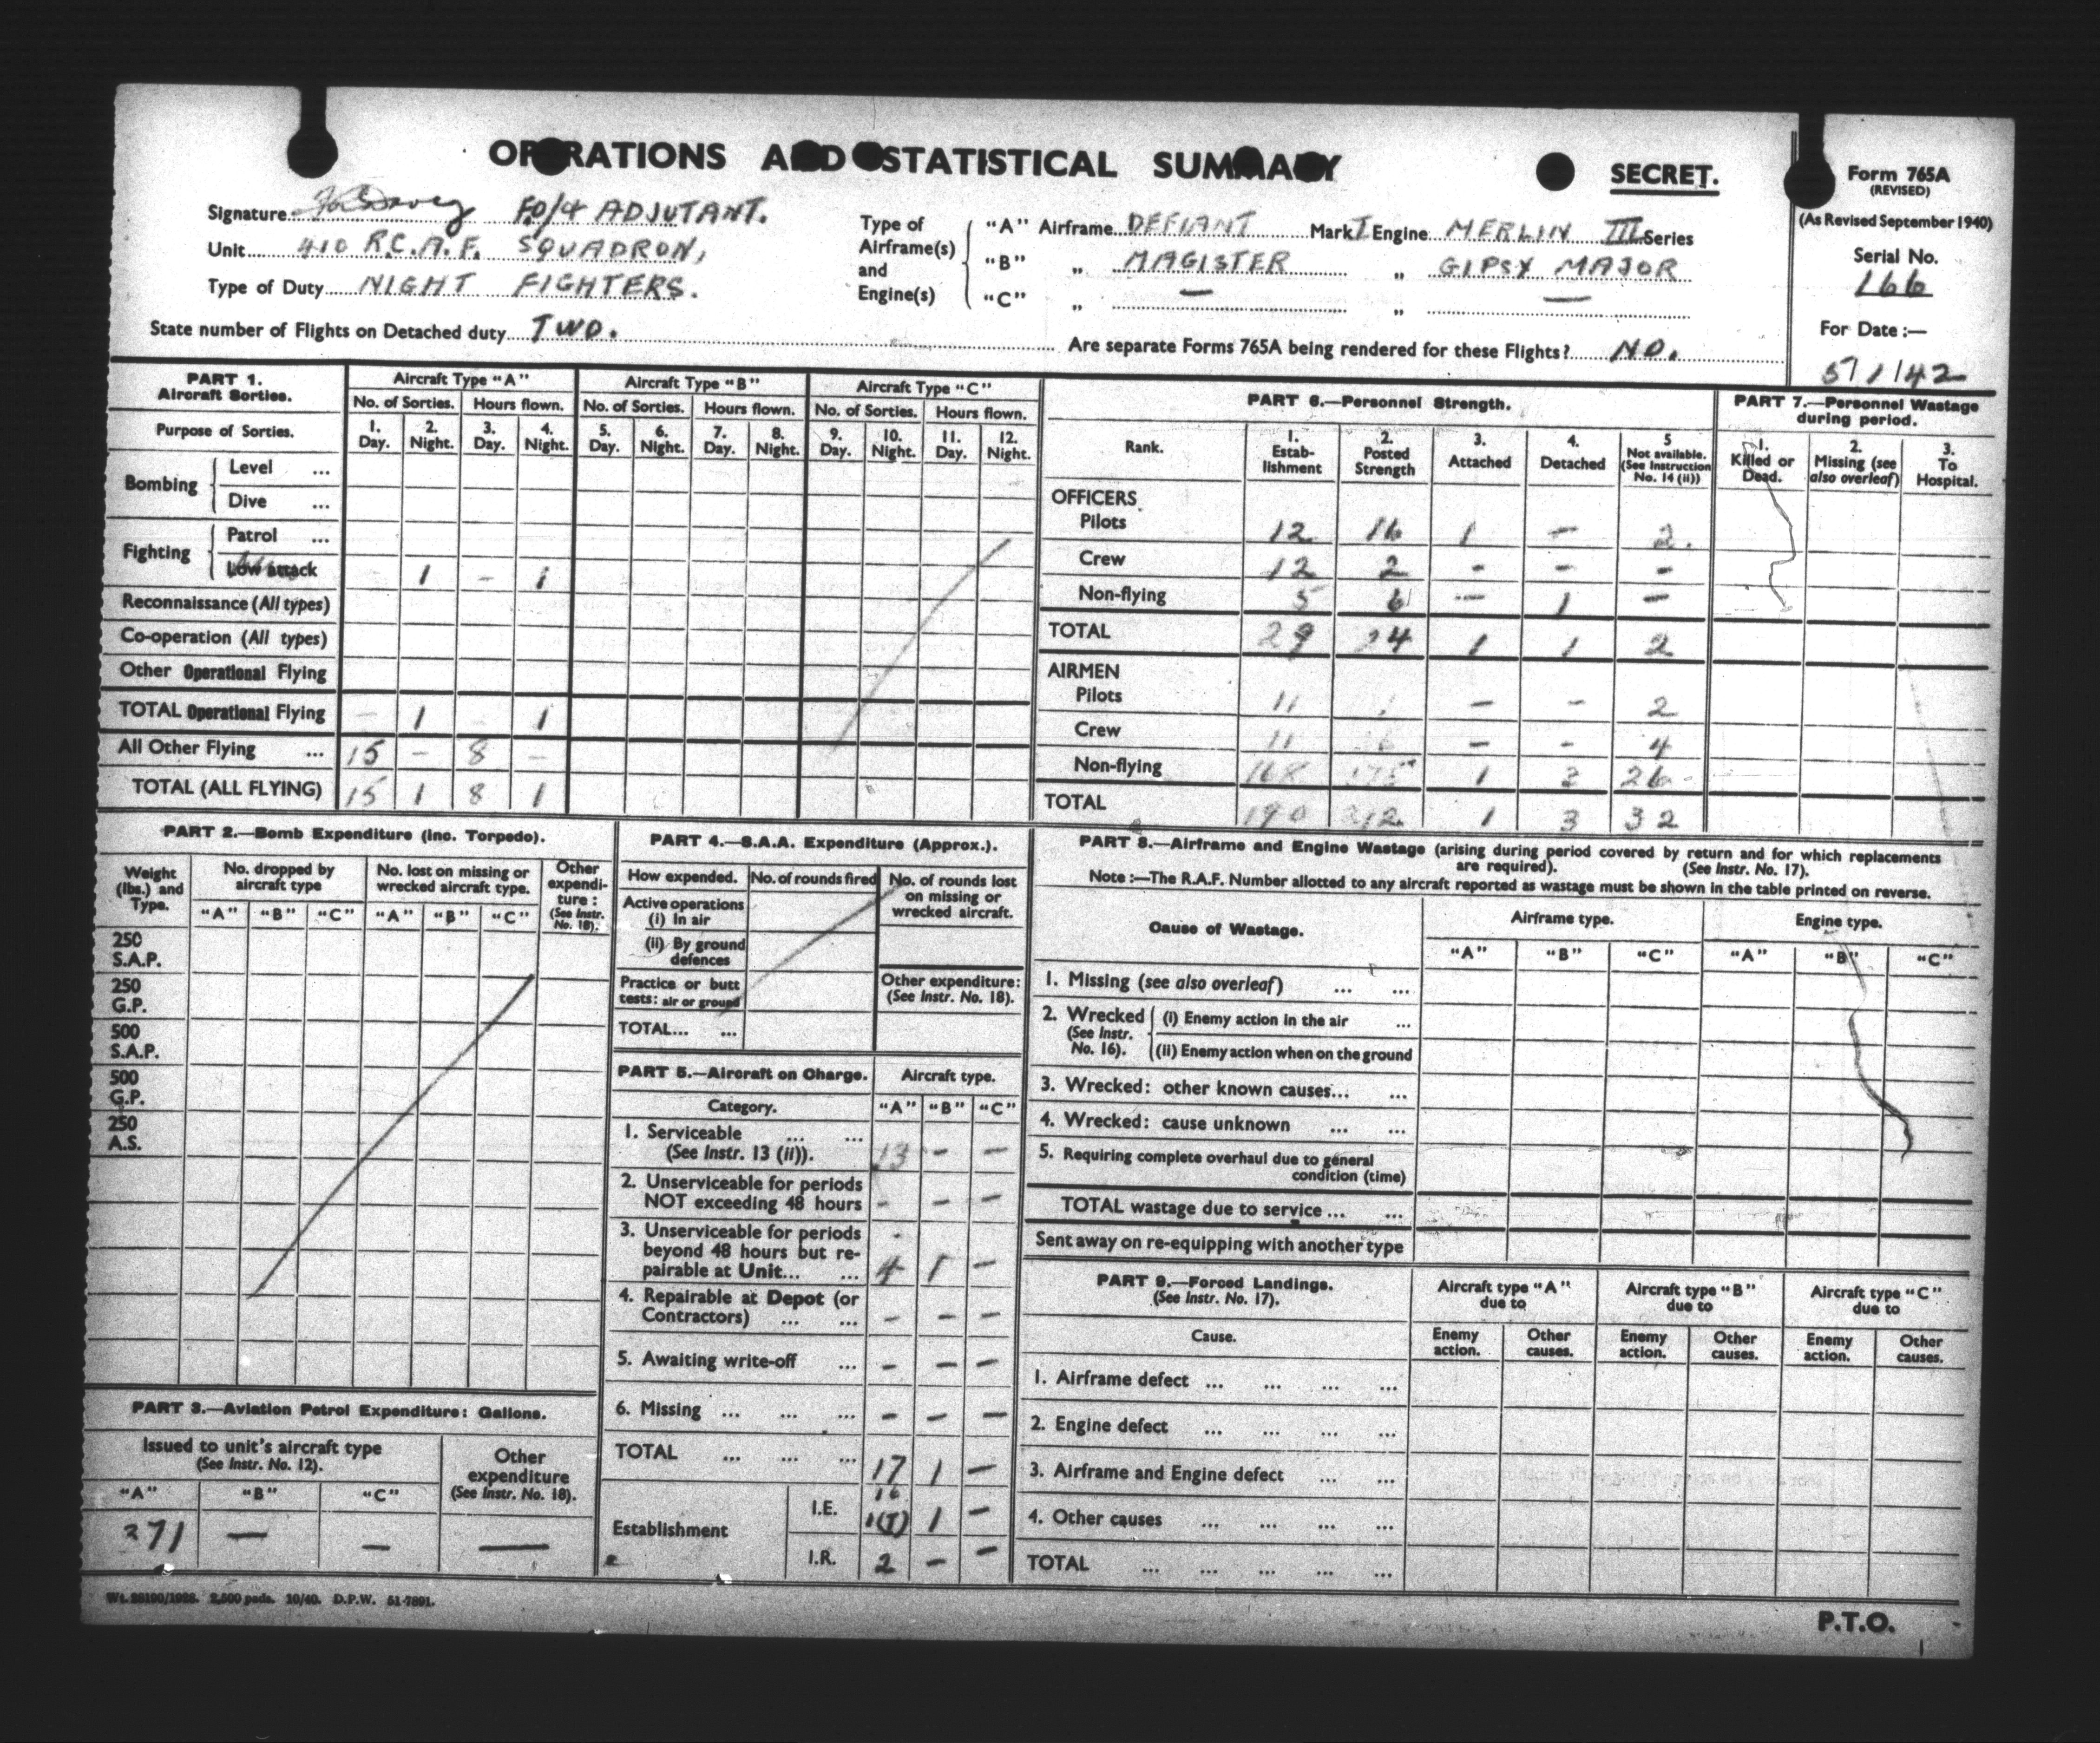 OPERATIONS AND STATISTICAL SUMMARY
SECRET.
Form 765A
(REVISED)
(As Revised September 1940)
Serial No.
166
For Date :—
5/1/42
Signature F.O/4 ADJUTANT.
Unit 410 R.C.A.F. SQUADRON,
Type of Duty NIGHT FIGHTERS.
State number of Flights on Detached duty TWO.
Type of Airframe(s) and Engine(s)
"A" Airframe DEFIANT Mark I Engine MERLIN III Series
"B" „ MAGISTER „ GIPSY MAJOR
"C" „ — „ —
Are separate Forms 765A being rendered for these Flights? NO.
PART 1.
Aircraft Sorties.
Aircraft Type "A" Aircraft Type "B" Aircraft Type "C"
No. of Sorties. Hours flown. No. of Sorties. Hours flown. No. of Sorties. Hours flown.
Purpose of Sorties.
1. Day. 2. Night. 3. Day. 4. Night. 5. Day. 6. Night. 7. Day. 8. Night. 9. Day. 10. Night. 11. Day. 12. Night.
Bombing
Level ...
Dive ...
Fighting
Patrol ...
Low attack 1 - 1
Reconnaissance (All types)
Co-operation (All types)
Other Operational Flying
TOTAL Operational Flying - 1 - 1
All Other Flying ... 15 - 8 -
TOTAL (ALL FLYING) 15 1 8 1
PART 6.—Personnel Strength.
Rank.
1. Estab-lishment
2. Posted Strength
3. Attached
4. Detached
5 Not available. (See Instruction No. 14 (ii))
OFFICERS
Pilots 12 16 1 - 2.
Crew 12 2 - - -
Non-flying 5 6 - 1 -
TOTAL 29 24 1 1 2
AIRMEN
Pilots 11 - - 2
Crew 11 - - 4
Non-flying 168 175 1 3 26
TOTAL 190 212 1 3 32
PART 7.—Personnel Wastage during period.
1. Killed or Dead.
2. Missing (see also overleaf)
3. To Hospital.
PART 2.—Bomb Expenditure (inc. Torpedo).
Weight (lbs.) and Type.
No. dropped by aircraft type
No. lost on missing or wrecked aircraft type.
Other expendi-ture : (See Instr. No. 18).
"A" "B" "C" "A" "B" "C"
250 S.A.P.
250 G.P.
500 S.A.P.
500 G.P.
250 A.S.
PART 3.—Aviation Petrol Expenditure: Gallons.
Issued to unit's aircraft type
(See Instr. No. 12).
Other expenditure (See Instr. No. 18).
"A" "B" "C"
371 — — —
PART 4.—S.A.A. Expenditure (Approx.).
How expended. No. of rounds fired No. of rounds lost on missing or wrecked aircraft.
Active operations
(i) In air
(ii) By ground defences
Practice or butt tests: air or ground
Other expenditure: (See Instr. No. 18).
TOTAL... ...
PART 5.—Aircraft on Charge. Aircraft type.
Category. "A" "B" "C"
1. Serviceable ... ...
(See Instr. 13 (ii)). 13 - -
2. Unserviceable for periods
NOT exceeding 48 hours - - -
3. Unserviceable for periods
beyond 48 hours but re-
pairable at Unit... ... 4 1 -
4. Repairable at Depot (or
Contractors) ... ... - - -
5. Awaiting write-off ... - - -
6. Missing ... ... ... - - -
TOTAL ... ... ... 17 1 -
Establishment
I.E. 16 1(I) 1 -
I.R. 2 - -
PART 8.—Airframe and Engine Wastage (arising during period covered by return and for which replacements
are required). (See Instr. No. 17).
Note :—The R.A.F. Number allotted to any aircraft reported as wastage must be shown in the table printed on reverse.
Cause of Wastage. Airframe type. Engine type.
"A" "B" "C" "A" "B" "C"
1. Missing (see also overleaf) ... ...
2. Wrecked (See Instr. No. 16).
(i) Enemy action in the air ...
(ii) Enemy action when on the ground
3. Wrecked: other known causes... ...
4. Wrecked: cause unknown ... ...
5. Requiring complete overhaul due to general
condition (time)
TOTAL wastage due to service ... ...
Sent away on re-equipping with another type
PART 9.—Forced Landings.
(See Instr. No. 17).
Aircraft type "A" due to Aircraft type "B" due to Aircraft type "C" due to
Cause.
Enemy action. Other causes. Enemy action. Other causes. Enemy action. Other causes.
1. Airframe defect ... ... ... ...
2. Engine defect ... ... ... ...
3. Airframe and Engine defect ... ...
4. Other causes ... ... ... ...
TOTAL ... ... ... ... ...
Wt. 28190/1928. 2,500 pads. 10/40. D.P.W. 51-7891.
P.T.O.